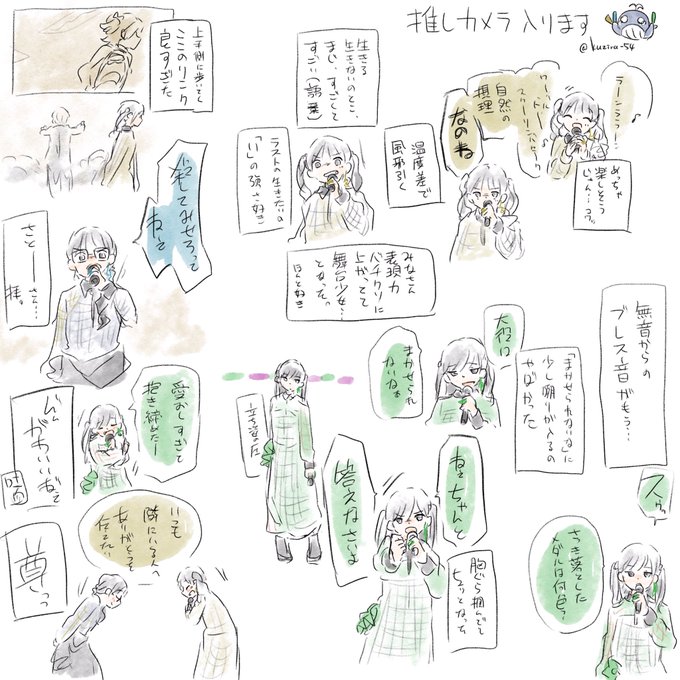 推しカメラ入ります
@kuzira-54
ラーンララッ…♪
ワールド
スクリーン
自然の
摂理
なのね
めっちゃ
楽しそう
じゃん…っ
生きる
生きないのとこ、
まじ、すっごく
すごい(語彙)
温度差で
風邪引く
ラストの生きたいの
「い」の強さ好き
みなさん
表現力
バチクソに
上がってて
舞台少女…
となった。
ほんと好き
上手側に歩いてく
ここのリンク
良すぎた
殺してみせろって
ねぇ
さとーーさん…
拝。
無音からの
ブレス音がもう…
スゥッ
さっき落とした
メダルは何色?
大役に
まかせられ
ないねぇ
「まかせられないね」に
少し嘲りが入るの
やばかった
立ち姿の圧
ねぇちゃんと
答えなさいよ
胸ぐら掴んでて
ひょっとなった
愛おしすぎて
抱き締めたー
ずん
がわいいねぇ
いつも
隣にいる人へ
ありがとうって
伝えたい
尊いっ